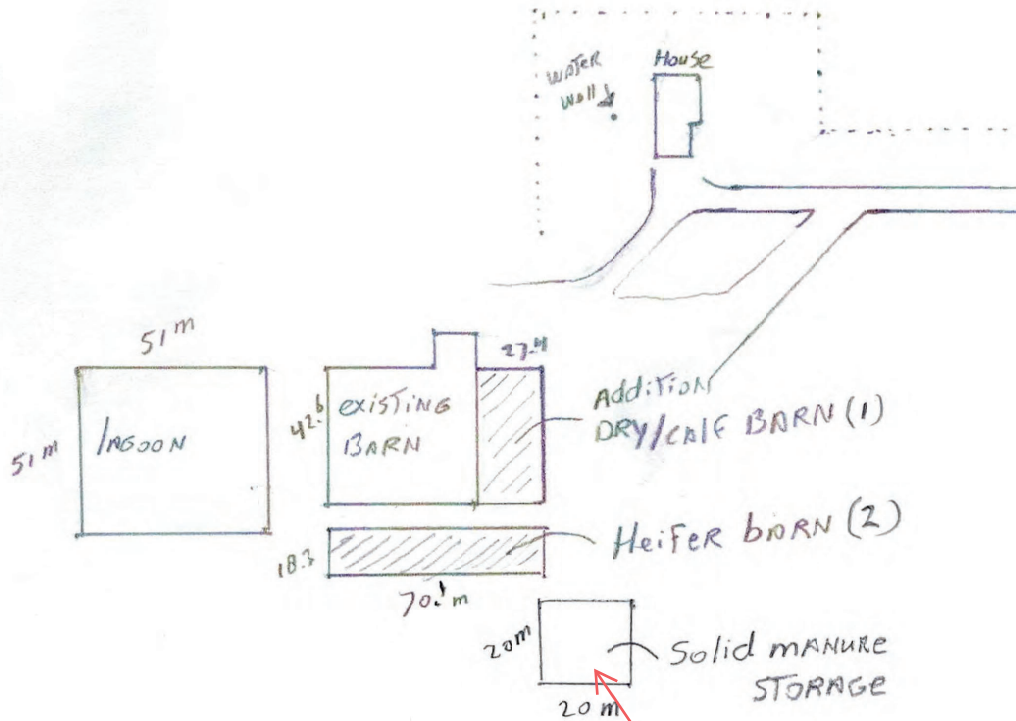 House
WATER
Well
51 m
51 m
lAGOON
42.6
eXISTING
BARN
27.4
ADDITION
DRY/CAlF BARN (1)
HeiFeR bARN (2)
18.3
70.1 m
20 m
20 m
Solid mANURE
STORAGE